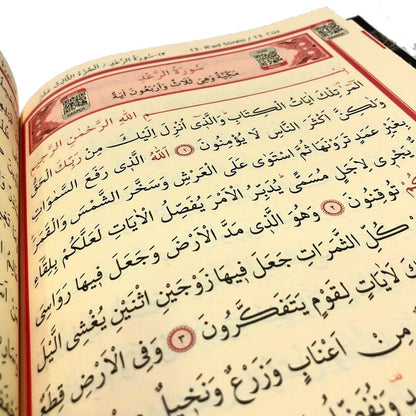 ١٣-سُورَةُ الرَّعْدِ / الْجُزْءُ الثَّالِثُ عَشَرَ
13 - Rad Sûresi / 13. Cüz
سُورَةُ الرَّعْدِ
مَكِّيَّةٌ وَهِيَ ثَلَاثٌ وَأَرْبَعُونَ اٰيَةً
بِسْمِ اللّٰهِ الرَّحْمٰنِ الرَّحِيمِ
الٓمٓرٰ تِلْكَ اٰيَاتُ الْكِتَابِ وَالَّذٖى اُنْزِلَ اِلَيْكَ مِنْ رَبِّكَ الْحَقُّ
وَلٰكِنَّ اَكْثَرَ النَّاسِ لَا يُؤْمِنُونَ ١ اَللّٰهُ الَّذٖى رَفَعَ السَّمٰوَاتِ
بِغَيْرِ عَمَدٍ تَرَوْنَهَا ثُمَّ اسْتَوٰى عَلَى الْعَرْشِ وَسَخَّرَ الشَّمْسَ وَالْقَمَرَ
يَجْرٖى لِاَجَلٍ مُسَمًّى يُدَبِّرُ الْاَمْرَ يُفَصِّلُ الْاٰيَاتِ لَعَلَّكُمْ بِلِقَاءِ
تُوقِنُونَ ٢ وَهُوَ الَّذٖى مَدَّ الْاَرْضَ وَجَعَلَ فٖيهَا رَوَاسِىَ
كُلِّ الثَّمَرَاتِ جَعَلَ فٖيهَا زَوْجَيْنِ اثْنَيْنِ يُغْشِى الَّيْلَ
لَاٰيَاتٍ لِقَوْمٍ يَتَفَكَّرُونَ ٣ وَفِى الْاَرْضِ قِطَعٌ
مِنْ اَعْنَابٍ وَزَرْعٌ وَنَخٖيلٌ